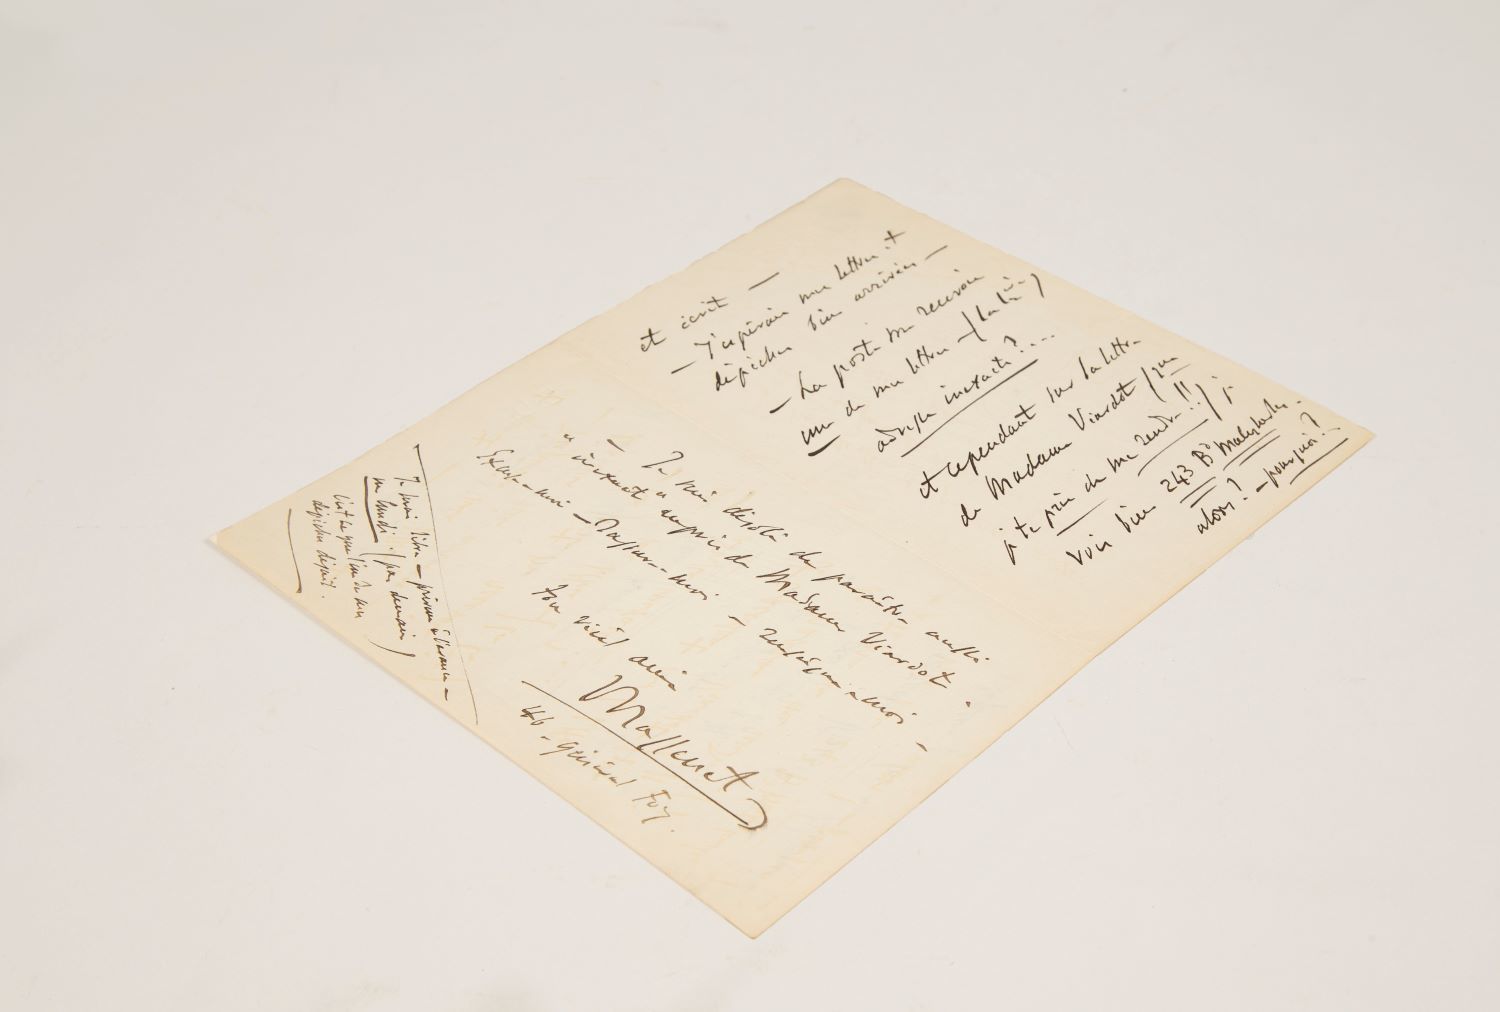 et écrit —
— J'espérais ma lettre et
dépêches bien arrivées —
— La poste me renvoie
une de ma lettre — (la 1re)
adresse inexacte ?....
et cependant sur la lettre
de Madame Viardot (que
je te prie de me rendre !!) je
vois bien 243 Bd Malesherbes.
alors ? — pourquoi ?
— Je suis désolé de paraître aussi
" inexact " auprès de Madame Viardot.
Excuse-moi — rassure-moi — renseigne-moi —
ton vieil ami
Massenet
46 - Général Foy.
Je serai libre — préviens à l'avance —
lundi. (pas demain)
dépêches déjà.